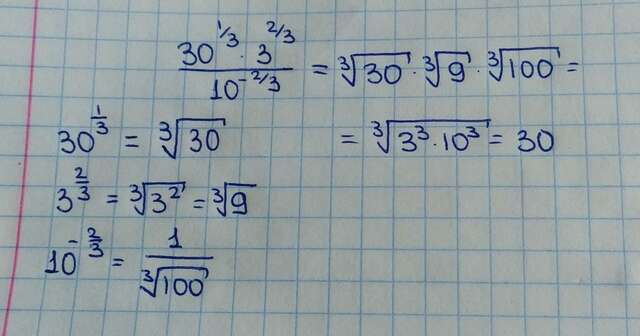 30^{1/3} · 3^{2/3} / 10^{-2/3} = ∛30 · ∛9 · ∛100 =
30^{1/3} = ∛30
= ∛(3³ · 10³) = 30
3^{2/3} = ∛3² = ∛9
10^{-2/3} = 1/∛100